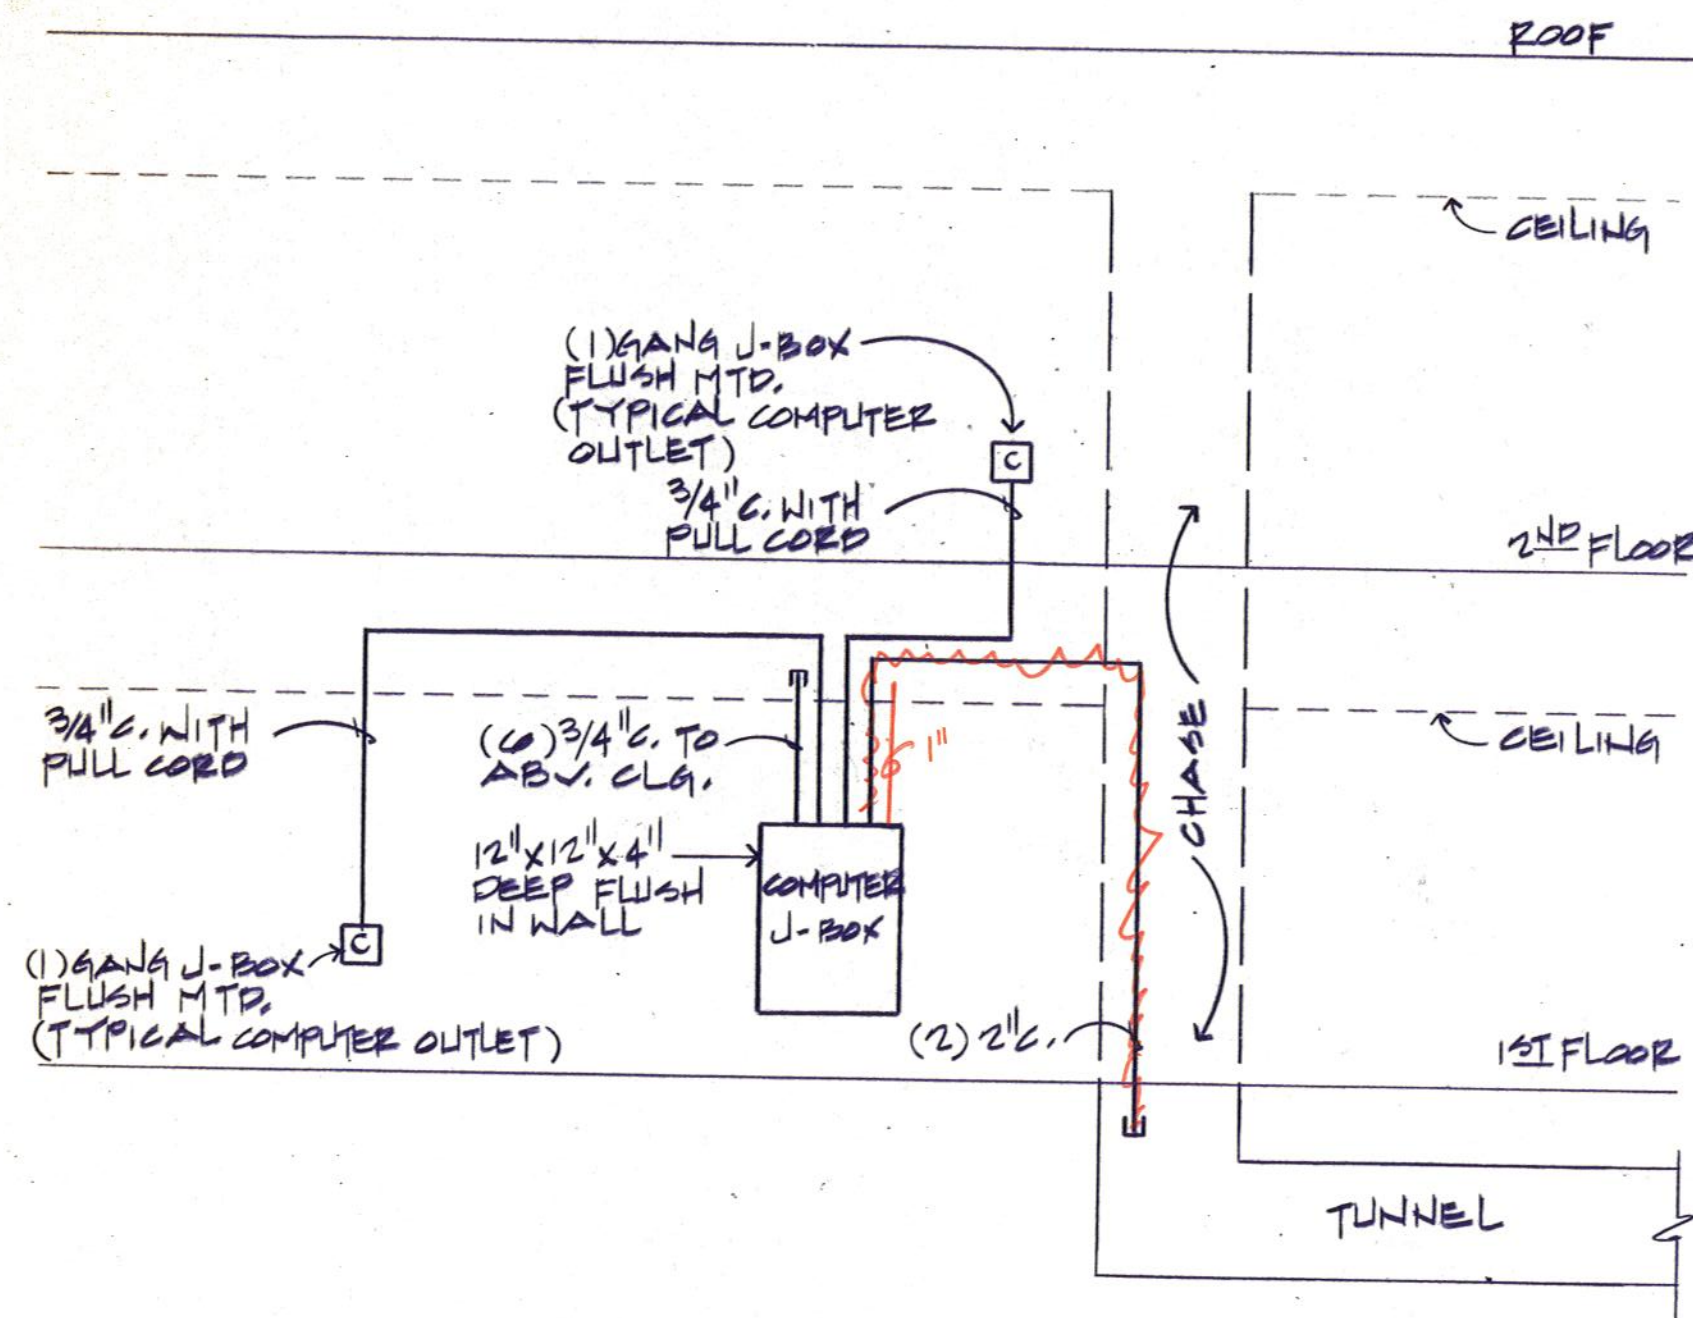 ROOF
CEILING
(1) GANG J-BOX
FLUSH MTD.
(TYPICAL COMPUTER
OUTLET)
C
3/4" C. WITH
PULL CORD
2ND FLOOR
3/4" C. WITH
PULL CORD
(6) 3/4" C. TO
ABV. CLG.
1"
CHASE
CEILING
12" X 12" X 4"
DEEP FLUSH
IN WALL
COMPUTER
J-BOX
C
(1) GANG J-BOX
FLUSH MTD.
(TYPICAL COMPUTER OUTLET)
(2) 2" C.
1ST FLOOR
TUNNEL